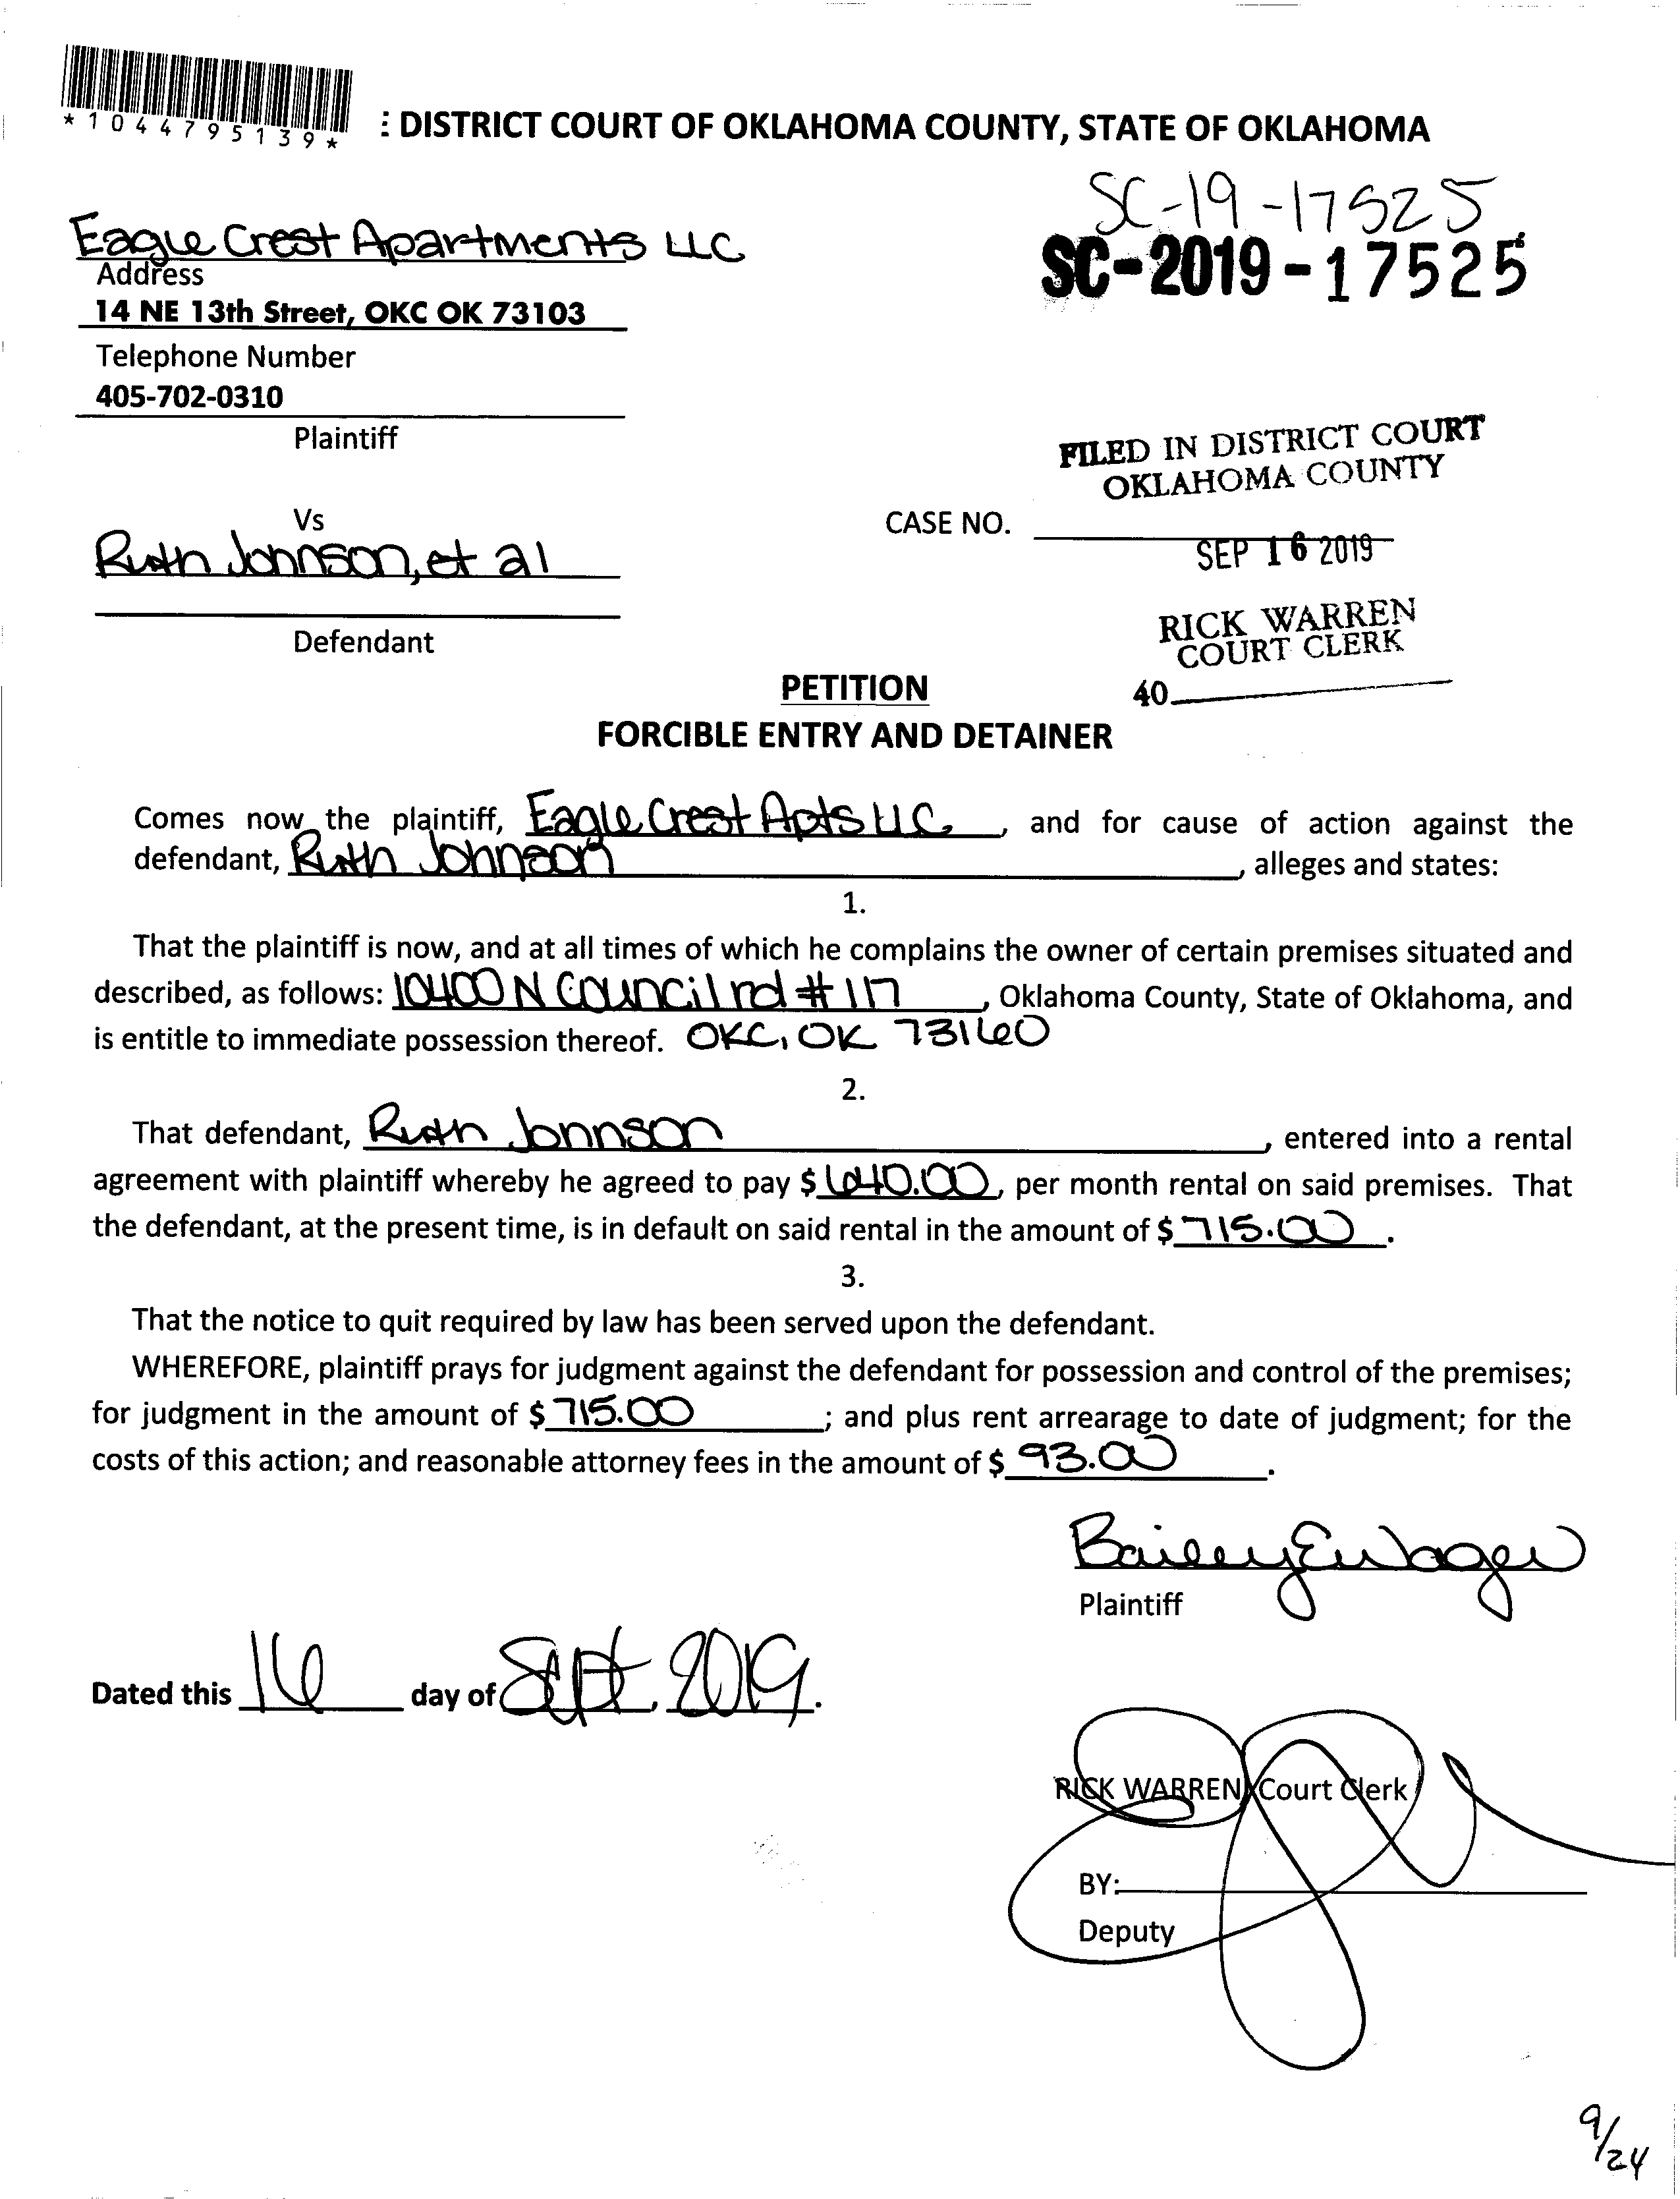 *1044795139*
: DISTRICT COURT OF OKLAHOMA COUNTY, STATE OF OKLAHOMA
SC-19-17525
SC-2019-17525
Eagle Crest Apartments LLC
Address
14 NE 13th Street, OKC OK 73103
Telephone Number
405-702-0310
Plaintiff
FILED IN DISTRICT COURT
OKLAHOMA COUNTY
Vs
CASE NO.
SEP 16 2019
Ruth Johnson, et al
RICK WARREN
COURT CLERK
Defendant
40
PETITION
FORCIBLE ENTRY AND DETAINER
Comes now the plaintiff, Eagle Crest Apts LLC, and for cause of action against the
defendant, Ruth Johnson, alleges and states:
1.
That the plaintiff is now, and at all times of which he complains the owner of certain premises situated and
described, as follows: 10400 N Council rd #117, Oklahoma County, State of Oklahoma, and
is entitle to immediate possession thereof. OKC, OK 73160
2.
That defendant, Ruth Johnson, entered into a rental
agreement with plaintiff whereby he agreed to pay $640.00, per month rental on said premises. That
the defendant, at the present time, is in default on said rental in the amount of $715.00.
3.
That the notice to quit required by law has been served upon the defendant.
WHEREFORE, plaintiff prays for judgment against the defendant for possession and control of the premises;
for judgment in the amount of $715.00; and plus rent arrearage to date of judgment; for the
costs of this action; and reasonable attorney fees in the amount of $93.00.
Plaintiff
Dated this 16 day of Sept, 2019.
RICK WARREN, Court Clerk
BY:
Deputy
9/24